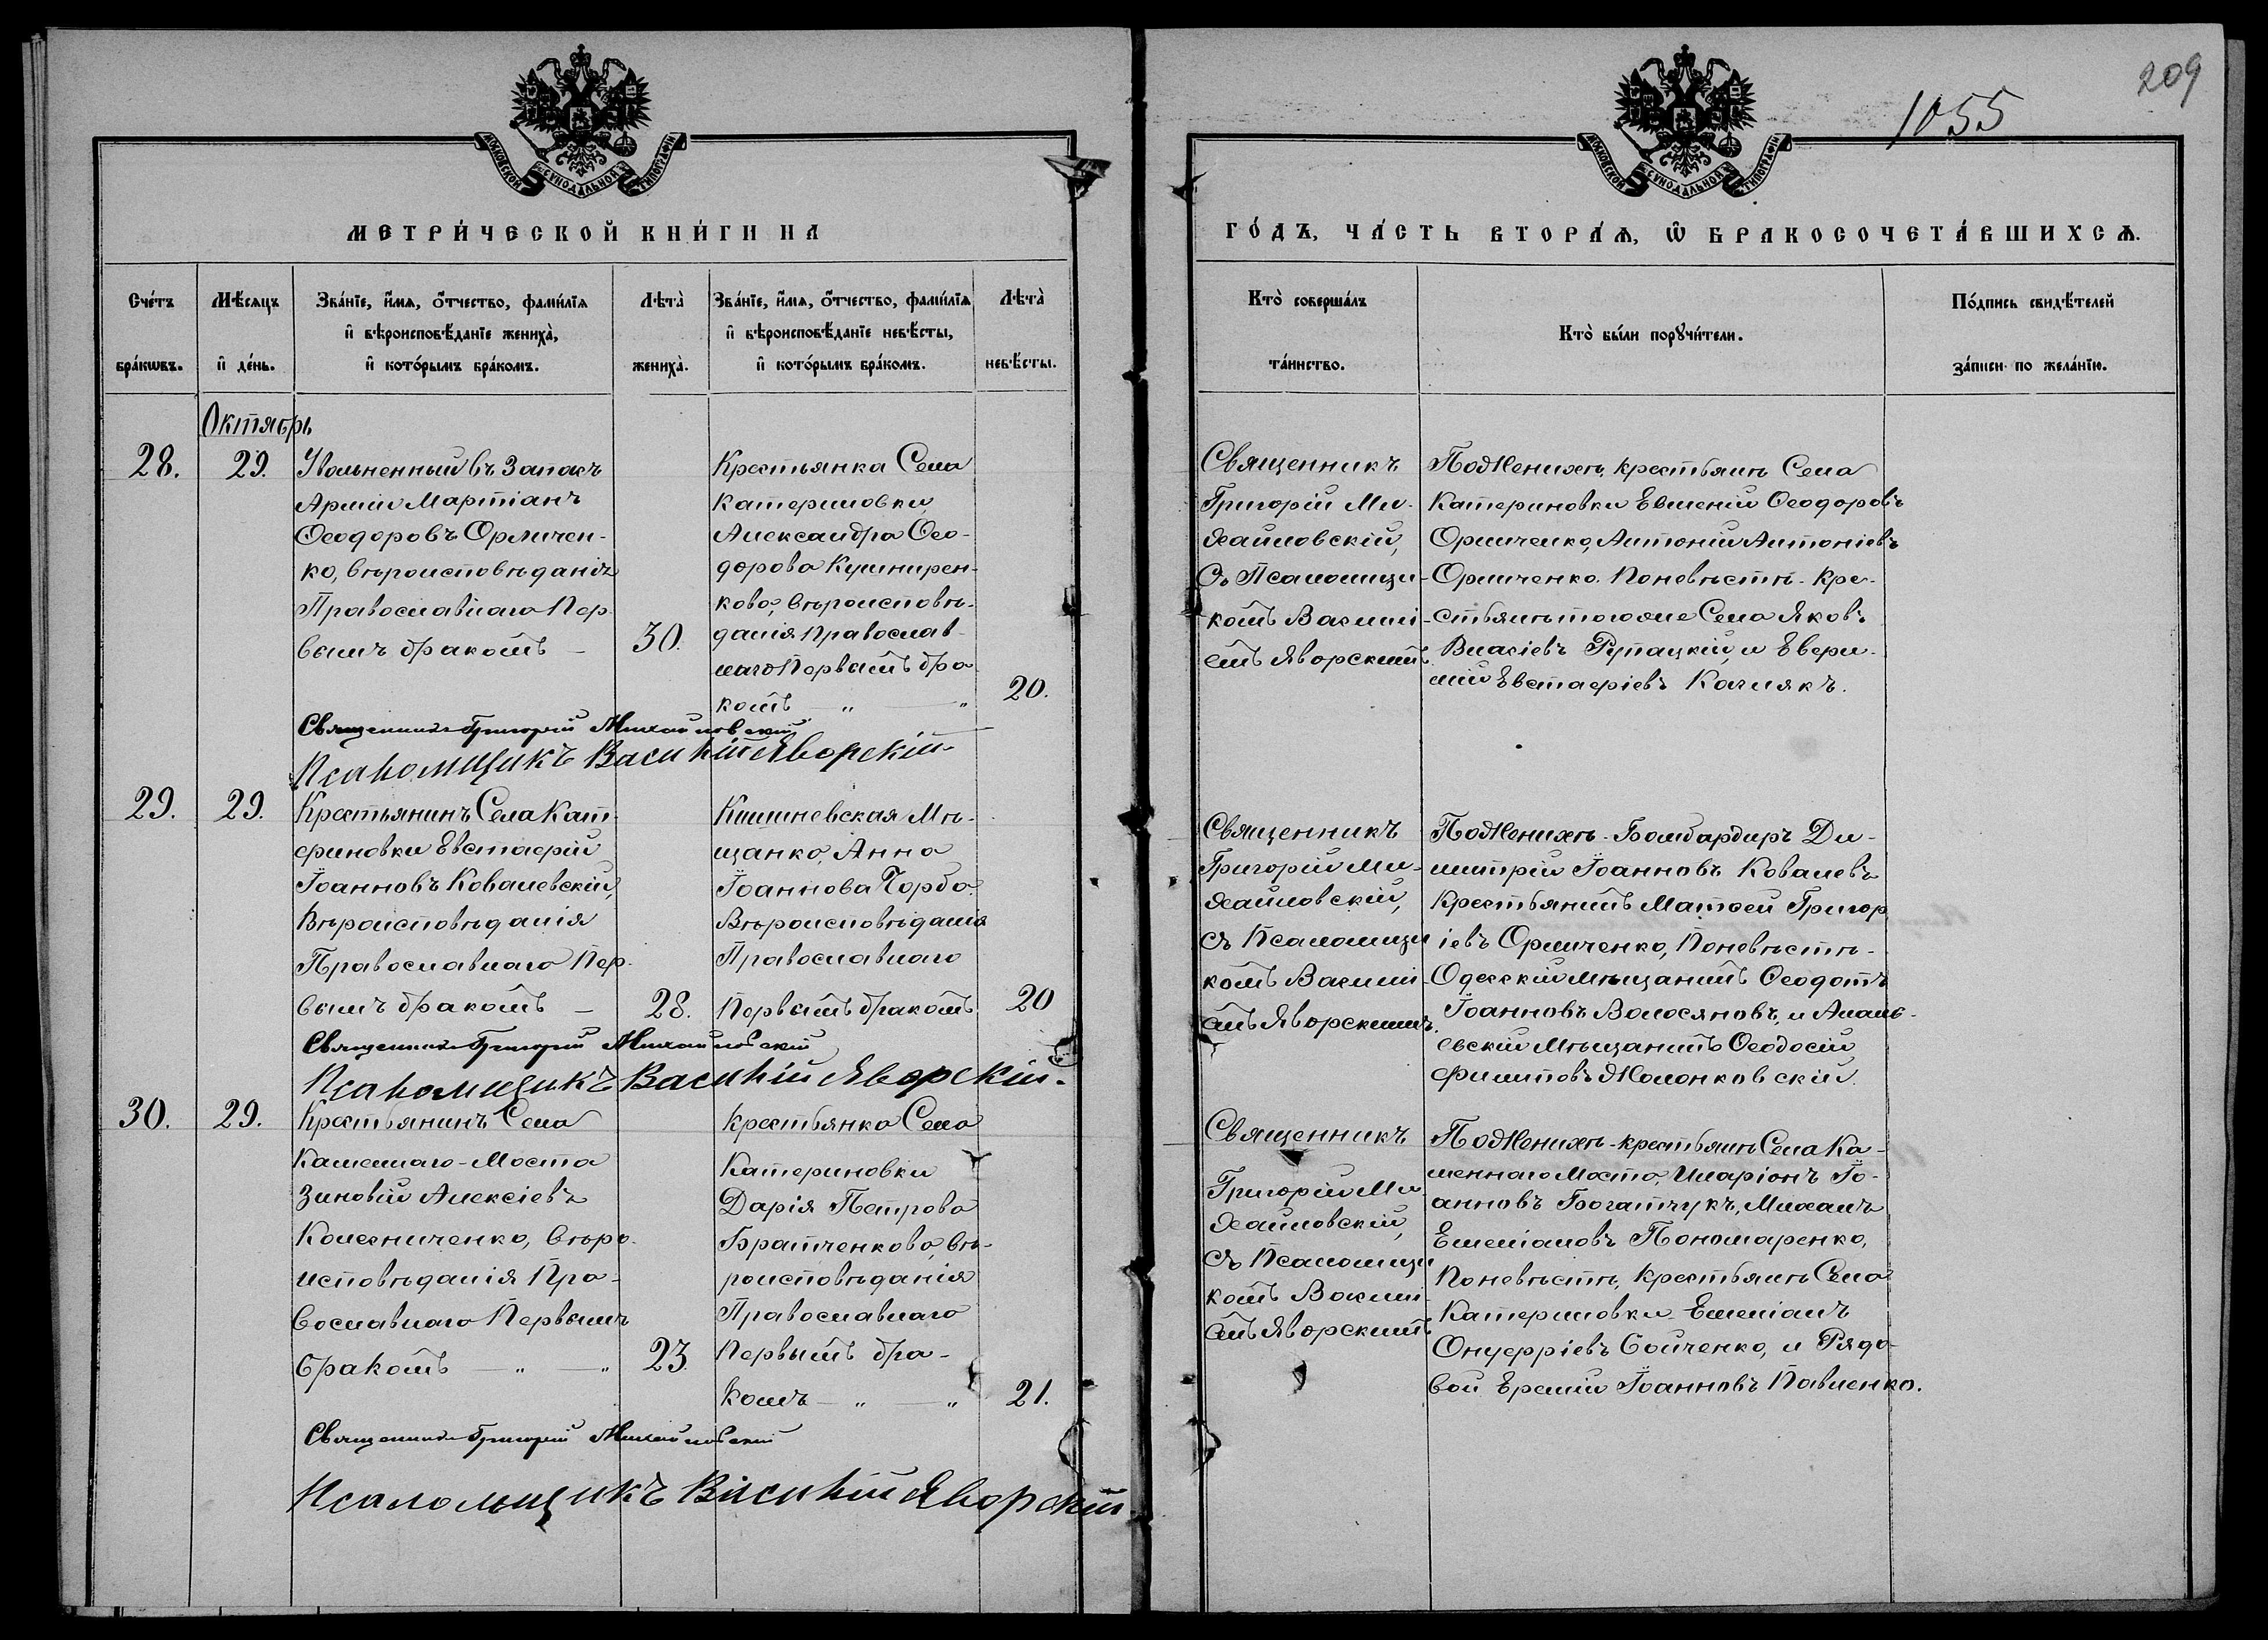 209
1055
МОСКОВСКОЙ СѴНОДАЛЬНОЙ ТИПОГРАФІИ
МОСКОВСКОЙ СѴНОДАЛЬНОЙ ТИПОГРАФІИ
МЕТРИ́ЧЕСКОЙ КНИ́ГИ НА
ГО́ДЪ, ЧА́СТЬ ВТОРА́Ѧ, Ѡ҆ БРАКОСОЧЕТА́ВШИХСѦ.
Сче́тъ
бра́кѡвъ.
Мѣ́сяцъ
и҆ де́нь.
Зва́нїе, и҆́мѧ, ѻ҆́тчество, фами́лїѧ
и҆ вѣроисповѣ́данїе жениха̀,
и҆ кото́рымъ бра́комъ.
Лѣта̀
жениха̀.
Зва́нїе, и҆́мѧ, ѻ҆́тчество, фами́лїѧ
и҆ вѣроисповѣ́данїе невѣ́сты,
и҆ кото́рымъ бра́комъ.
Лѣта̀
невѣ́сты.
Кто̀ соверша́лъ
та́инство.
Кто̀ бы́ли порꙋчи́тели.
По́дпись свидѣ́телей
за́писи по жела́нїю.
Октябрь
28.
29.
Уволненный въ Запасъ
Арміи Мартіанъ
Ѳеодоровъ Орличен-
ко, вѣроисповѣданія
Православнаго Пер-
вымъ бракомъ —
30.
Крестьянка Села
Катериновки
Александра Ѳео-
дорова Кушнирен-
кова, вѣроисповѣ-
данія Православ-
наго Первымъ бра-
комъ — „ — „
20.
Священникъ
Григорій Ми-
хайловскій,
Съ Псаломщи-
комъ Василі-
емъ Яворскимъ.
По Женихѣ, крестьянѣ Села
Катериновки Евменій Ѳеодоровъ
Орличенко, Антоній Антоніевъ
Орличенко. По невѣстѣ. Кре-
стьянѣ тогоже Села Яковъ
Власіевъ Рупацкій, и Евери-
мій Евстаѳіевъ Качнякъ.
Священникъ Григорій Михайловскій
Псаломщикъ Василій Яворскій
29.
29.
Крестьянинъ Села Кат-
ериновки Евстаѳрій
Іоанновъ Ковалевскій,
Вѣроисповѣданія
Православнаго Пер-
вымъ бракомъ —
28.
Кишиневская Мѣ-
щанка, Анна
Іоаннова Чорба
Вѣроисповѣданія
Православнаго
Первымъ бракомъ
20
Священникъ
Григорій Ми-
хайловскій,
съ Псаломщи
комъ Василі-
емъ Яворскимъ.
По Женихѣ. Бомбардиръ Ди-
митрій Іоанновъ Ковалевъ
Крестьянинъ Матѳей Григор
іевъ Орличенко, По невѣстѣ-
Одесскій мѣщанинъ Ѳеодотъ
Іоанновъ Волосяновъ, и Анань-
евскій Мѣщанинъ Ѳеодосій
Филиповъ Жолонковскій.
Священникъ Григорій Михайловскій
Псаломщикъ Василій Яворскій.
30.
29.
Крестьянинъ Села
Каменнаго-Моста
Зиновій Алексіевъ
Колесниченко, вѣро-
исповѣданія Пра-
вославнаго Первымъ
бракомъ — „ — „
23.
Крестьянка Села
Катериновки
Дарія Петрова
Братченкова, вѣ-
роисповѣданія
Православнаго
Первымъ бра-
комъ — „ — „
21.
Священникъ
Григорій Ми-
хайловскій,
съ Псаломщи
комъ Васили-
емъ Яворскимъ
По Женихѣ-крестьянѣ Села Ка-
меннаго Моста, Иларіонъ Іо-
анновъ Богатчукъ, Михаилъ
Емеліановъ Пономаренко,
По невѣстѣ, крестьянѣ Села
Катериновки Емеліанъ
Онуфріевъ Бойченко, и Рядо-
вой Еремій Іоанновъ Павленко.
Священникъ Григорій Михайловскій
Псаломщикъ Василій Яворскій.